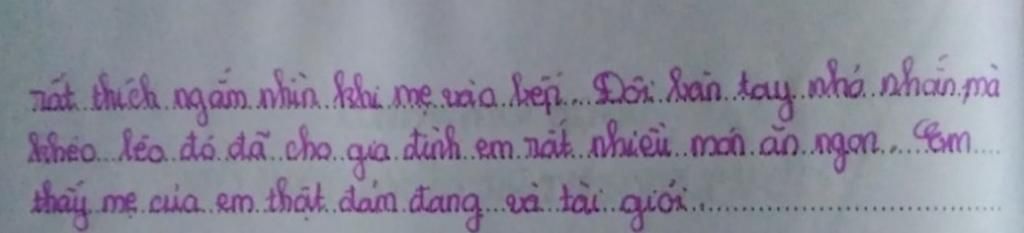 rất thích ngắm nhìn khi mẹ vào bếp. Đôi bàn tay nhỏ nhắn mà
khéo léo đó đã cho gia đình em rất nhiều món ăn ngon. Em
thấy mẹ của em thật đảm đang và tài giỏi.